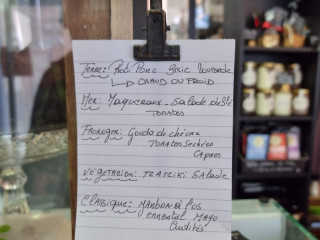 Terre: Roti Porc Bric Moutarde
↳ CHAUD OU FROID
Mer: Maquereaux - Salade de Sts
Tomates
Fromager: Gouda de chèvre
Tomates Sechées
Capres
VEGETARIEN: TZATZIKI SALADE
Classique: JAMBON
EMMENTAL MAYO